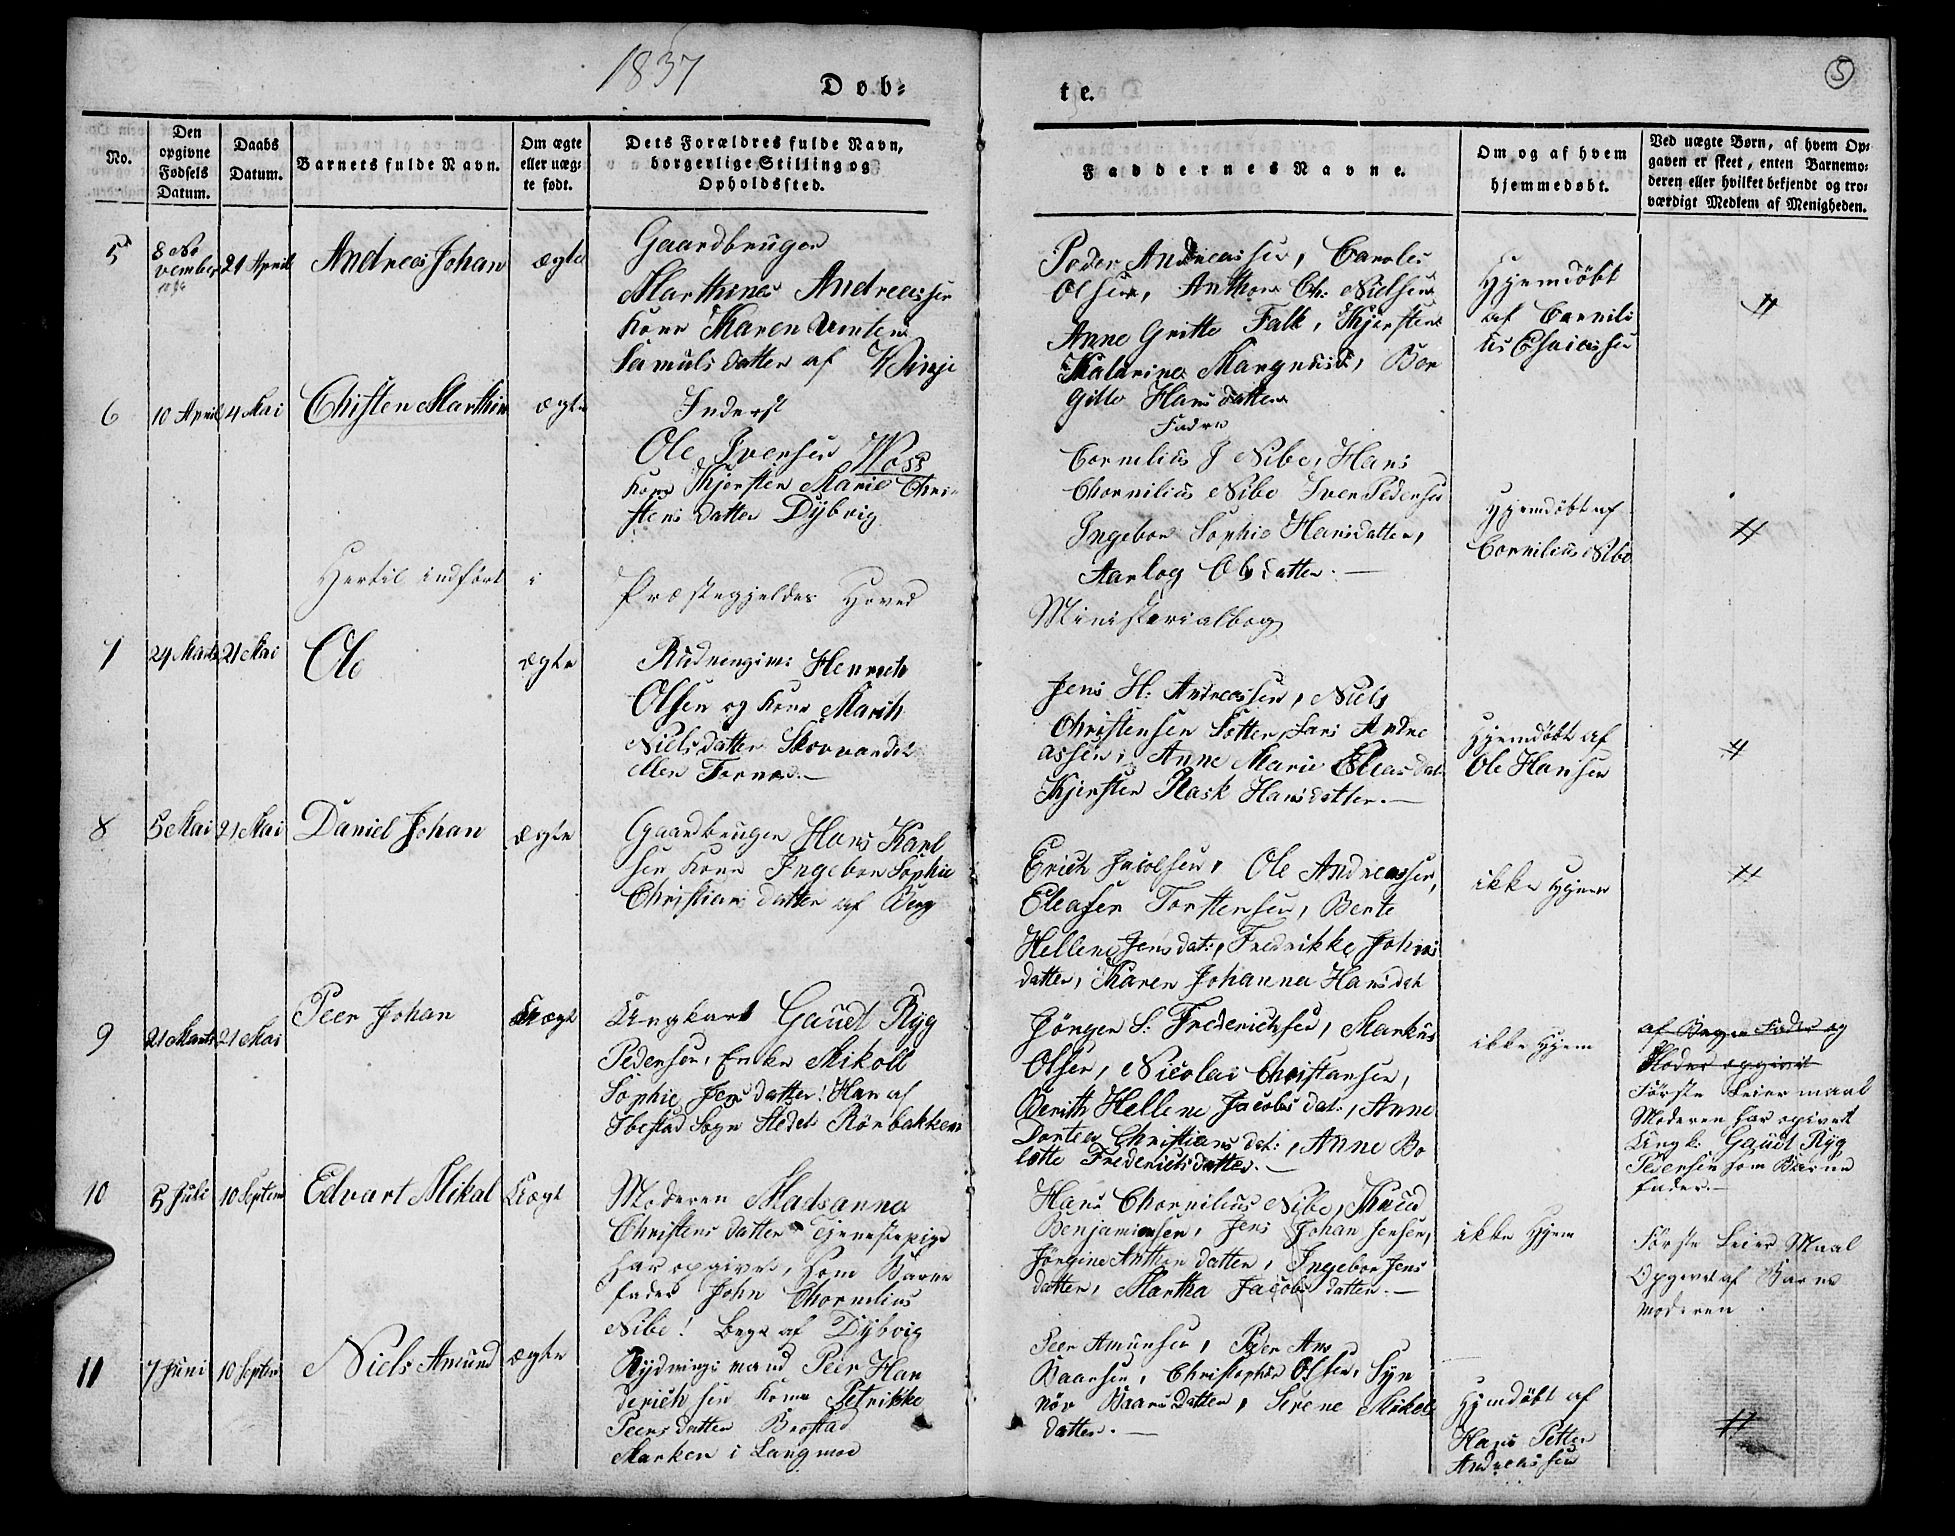 1837
5
Døb-
te.
No.
Den opgivne Fødsels Datum.
Daabs Datum.
Barnets fulde Navn.
Om ægte eller uægte født.
Dets Forældres fulde Navn, borgerlige Stilling og Opholdssted.
Faddernes Navne.
Om og af hvem hjemmedøbt.
Ved uægte Børn, af hvem Opgaven er skeet, enten Barnemoderen eller hvilket bekjendt og troværdigt Medlem af Menigheden.
5
8 No
vember
21 April
Andreas Johan
ægte
Gaardbruger
Marthines Andreassen
Kone Karen
Samuls datter af Vinje
Peder Andreassen, Caroles
Olsen, Anthon Ch: Nielsen
Anne Gritte Falk, Kjersten
Katarina
gitte Hansdatter
Hjemdøbt
af Cornili
us Esaiassen
6
10 April
4 Mai
Chisten Marthin
ægte
Inderst
Ole Iversen Woss
Kone Kjersten Marie Chri-
stens datter Dybvig
Fadre
Cornelius J Nibe, Hans
Chornilius Nibe Iver Pedersen
Ingebor Sophie Hansdatter,
Aarlog Olsdatter.—
Hjemdøbt af
Cornilius Nibe
Hertil indført i
Præstegjeldes Hoved
Ministerialbog
7
24 Marts
21 Mai
Ole
ægte
Rüdnengim: Henrich
Olsen og Kone Marith
Nielsdatter Skovvandet
ellen Fornes.—
Jens H: Andreassen, Niels
Christensen Sotter, Lars Andre
assen, Anne Marie Eleas dat
Kjersten Rask Hansdatter.—
Hjemdøbt af
Ole Hansen
8
5 Mai
21 Mai
Daniel Johan
ægte
Gaardbruger Hans Karl
sen Kone Ingebor Sophie
Christians datter af Berg
Erich Jacobsen, Ole Andreassen,
Eleaser Torstensen, Berte
Hellene Jensdat:, Fredrikke Johns
datter, Karen Johanna Hansdat
ikke Hjem
9
21 Marts
21 Mai
Peer Johan
Uægt
Ungkarl Gaudt Ryg
Pedersen, Enke Mikoll
Sophie Jens datter! Han af
Ibestad Sogn Stedet Rönbakken
Jörgen S: Frederichsen, Markus
Olsen, Nicolai Christansen,
Berith Hellene Jacobs dat:, Anne
Dortea Christians dat:, Anne Bo
lette Frederichsdatter.—
ikke Hjem
af Fader og
Moder opgivet
Første Leiermaal
Moderen har opgivet
Ungk: Gaudt Ryg
Pedersen som Barne
fader.—
10
5 Juli
10 Septem
Edvart Mikal
Uægt
Moderen Madsanna
Christens datter Tjenestepige
har opgivet, som Barne
fader John Chornelius
Nibe! Begge af Dybvig
Hans Chornilius Nibe, Knud
Benjaminsen, Jens Johan Jensen,
Jörgine Anthon datter, Ingebor Jens
datter, Martha Jacobs datter.—
ikke Hjem
Første Leier Maal
Opgivet af Barne
moderen.
11
7 Juni
10 Septem
Niels Amund
ægte
Rydnings mand Peer Han
derich sen Kone Petrikke
Peers datter Brostad
Marken i Langmoe
Peer Amunsen, Peder Ams
Baarsen, Christopher Olsen, Syn
növ Baarsdatter, Serene Mikels
datter.—
Hjemdøbt af
Hans Petter
Andreassen